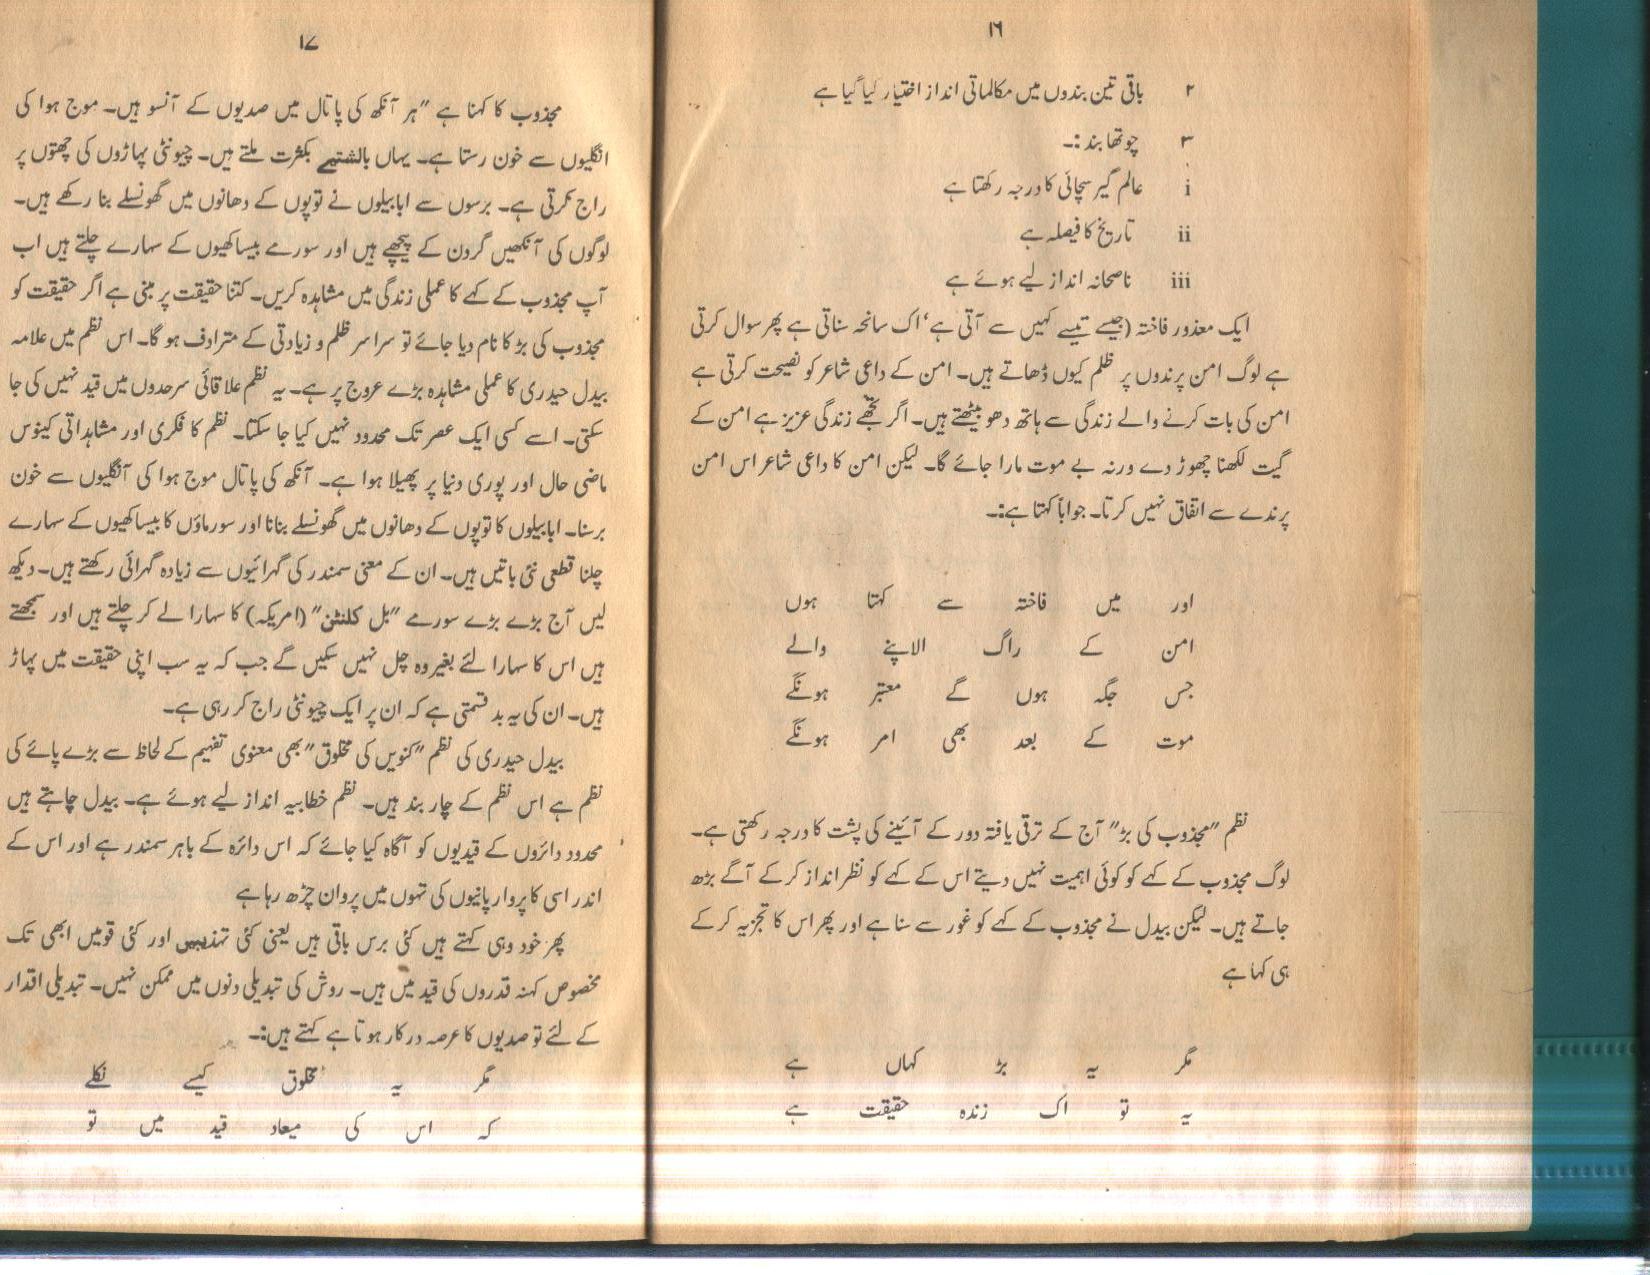 ۱۶
۲ باقی تین بندوں میں مکالماتی انداز اختیار کیا گیا ہے
۳ چوتھا بند :۔
i عالم گیر سچائی کا درجہ رکھتا ہے
ii تاریخ کا فیصلہ ہے
iii ناصحانہ انداز لیے ہوئے ہے
ایک معذور فاختہ (جیسے تیسے کہیں سے آتی ہے‘ اک سانحہ سناتی ہے پھر سوال کرتی
ہے لوگ امن پرندوں پر ظلم کیوں ڈھاتے ہیں۔ امن کے داعی شاعر کو نصیحت کرتی ہے
امن کی بات کرنے والے زندگی سے ہاتھ دھو بیٹھتے ہیں۔ اگر تجھے زندگی عزیز ہے امن کے
گیت لکھنا چھوڑ دے ورنہ بے موت مارا جائے گا۔ لیکن امن کا داعی شاعر اس امن
پرندے سے اتفاق نہیں کرتا۔ جواباً کہتا ہے:۔
اور میں فاختہ سے کہتا ہوں
امن کے راگ الاپنے والے
جس جگہ ہوں گے معتبر ہونگے
موت کے بعد بھی امر ہونگے
نظم ”مجذوب کی بڑ“ آج کے ترقی یافتہ دور کے آئینے کی پشت کا درجہ رکھتی ہے۔
لوگ مجذوب کے کہے کو کوئی اہمیت نہیں دیتے اس کے کہے کو نظر انداز کر کے آگے بڑھ
جاتے ہیں۔ لیکن بیدل نے مجذوب کے کہے کو غور سے سنا ہے اور پھر اس کا تجزیہ کر کے
ہی کہا ہے
مگر یہ بڑ کہاں ہے
یہ تو اک زندہ حقیقت ہے
۱۷
مجذوب کا کہنا ہے ”ہر آنکھ کی پاتال میں صدیوں کے آنسو ہیں۔ موج ہوا کی
انگلیوں سے خون رستا ہے۔ یہاں بالشتیے بکثرت ملتے ہیں۔ چیونٹی پہاڑوں کی چھتوں پر
راج کرتی ہے۔ برسوں سے ابابیلوں نے توپوں کے دھانوں میں گھونسلے بنا رکھے ہیں۔
لوگوں کی آنکھیں گردن کے پیچھے ہیں اور سورمے بیساکھیوں کے سہارے چلتے ہیں اب
آپ مجذوب کے کہے کا عملی زندگی میں مشاہدہ کریں۔ کتنا حقیقت پر مبنی ہے اگر حقیقت کو
مجذوب کی بڑ کا نام دیا جائے تو سراسر ظلم و زیادتی کے مترادف ہو گا۔ اس نظم میں علامہ
بیدل حیدری کا عملی مشاہدہ بڑے عروج پر ہے۔ یہ نظم علاقائی سرحدوں میں قید نہیں کی جا
سکتی۔ اسے کسی ایک عصر تک محدود نہیں کیا جا سکتا۔ نظم کا فکری اور مشاہداتی کینوس
ماضی حال اور پوری دنیا پر پھیلا ہوا ہے۔ آنکھ کی پاتال موج ہوا کی آنگلیوں سے خون
برسنا۔ ابابیلوں کا توپوں کے دھانوں میں گھونسلے بنانا اور سورماؤں کا بیساکھیوں کے سہارے
چلنا قطعی نئی باتیں ہیں۔ ان کے معنی سمندر کی گہرائیوں سے زیادہ گہرائی رکھتے ہیں۔ دیکھ
لیں آج بڑے بڑے سورمے ”بل کلنٹن“ (امریکہ) کا سہارا لے کر چلتے ہیں اور سمجھتے
ہیں اس کا سہارا لئے بغیر وہ چل نہیں سکیں گے جب کہ یہ سب اپنی حقیقت میں پہاڑ
ہیں۔ ان کی یہ بد قسمتی ہے کہ ان پر ایک چیونٹی راج کر رہی ہے۔
بیدل حیدری کی نظم ”کنویں کی مخلوق“ بھی معنوی تفہیم کے لحاظ سے بڑے پائے کی
نظم ہے اس نظم کے چار بند ہیں۔ نظم خطابیہ انداز لیے ہوئے ہے۔ بیدل چاہتے ہیں
محدود دائروں کے قیدیوں کو آگاہ کیا جائے کہ اس دائرہ کے باہر سمندر ہے اور اس کے
اندر اسی کا پروار پانیوں کی تہوں میں پروان چڑھ رہا ہے
پھر خود وہی کہتے ہیں کئی برس باقی ہیں یعنی کئی تہذیبیں اور کئی قومیں ابھی تک
مخصوص کہنہ قدروں کی قید میں ہیں۔ روش کی تبدیلی دنوں میں ممکن نہیں۔ تبدیلی اقدار
کے لئے تو صدیوں کا عرصہ درکار ہوتا ہے کہتے ہیں:۔
مگر یہ مخلوق کیسے نکلے
کہ اس کی میعاد قید میں تو